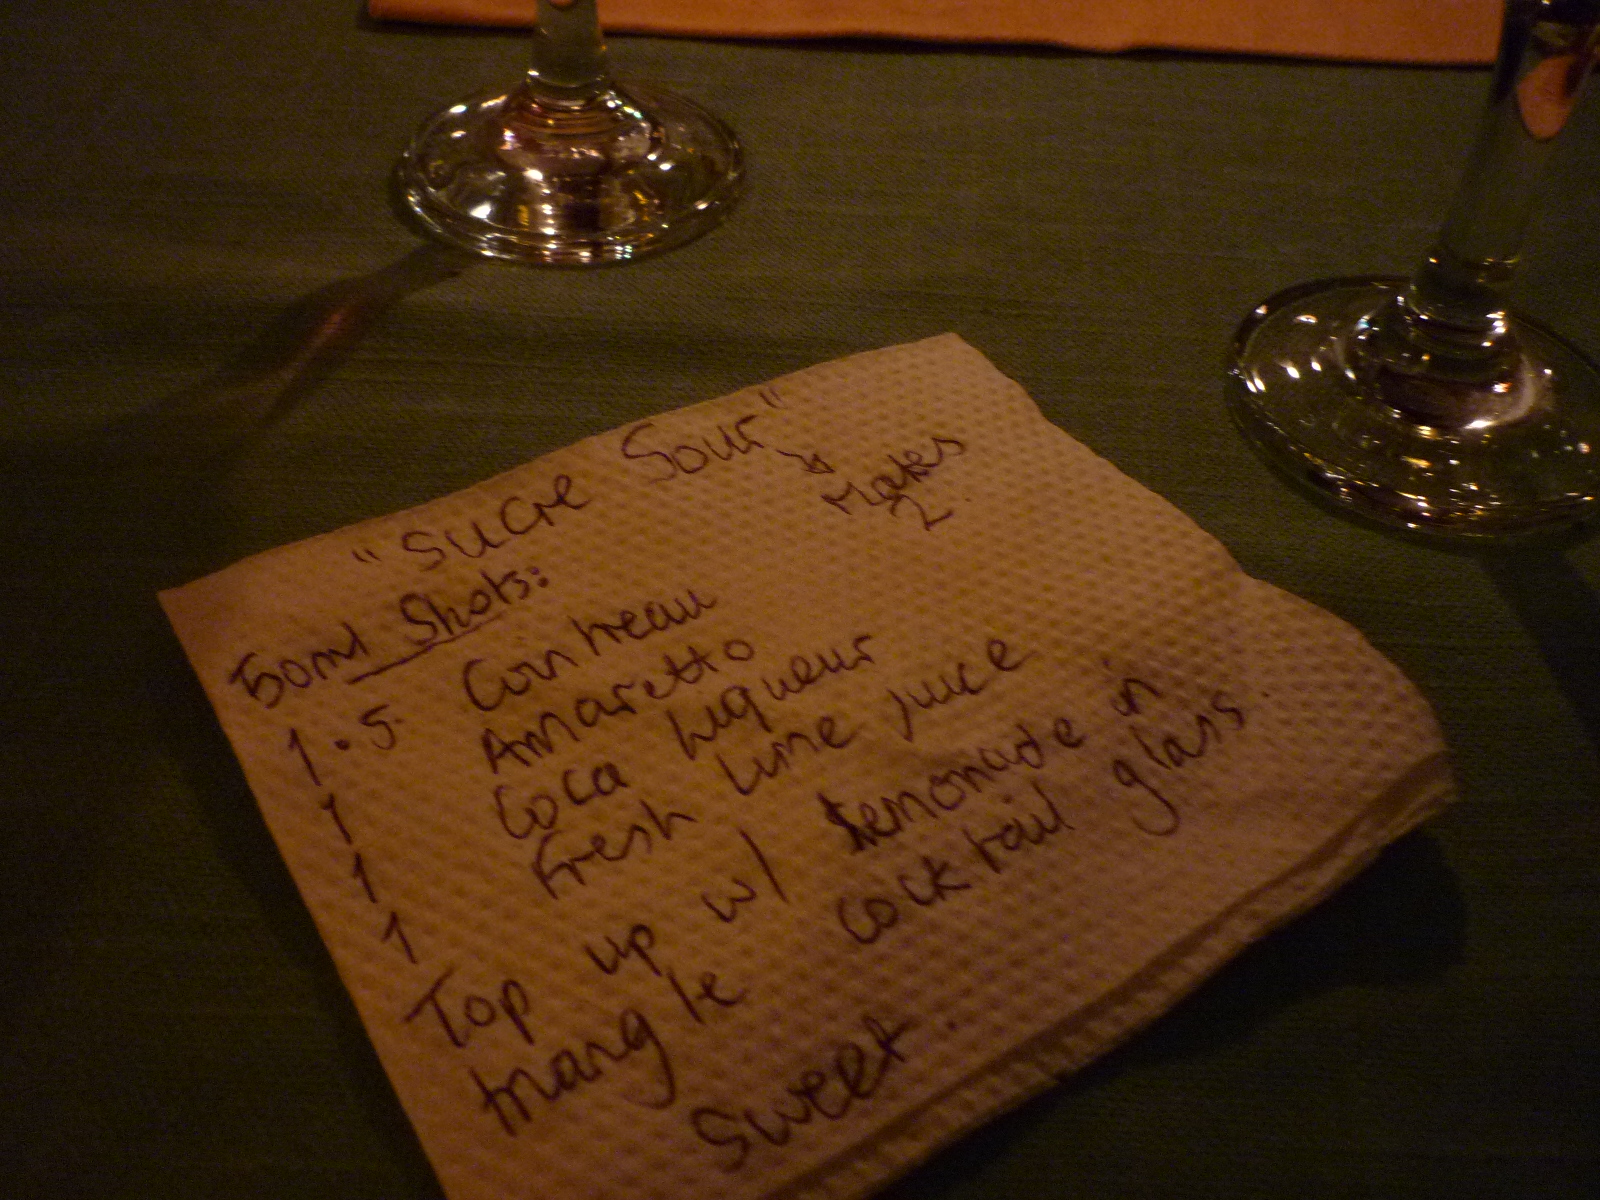 "Sucre Sour" → Makes 2
50ml Shots:
1.5 Cointreau
1 Amaretto
1 Coca Liqueur
1 Fresh Lime Juice
Top up w/ lemonade in
triangle cocktail glass.
Sweet.